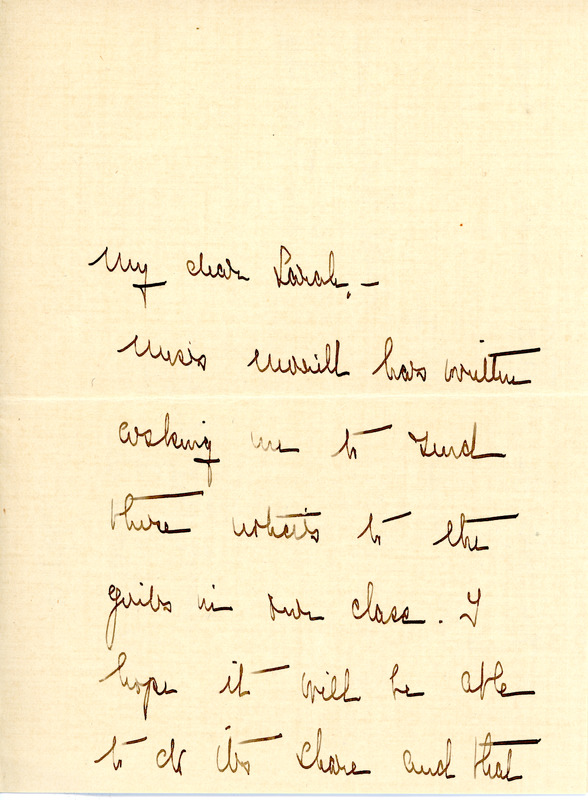 My dear Sarah, –
Miss Merrill has written
asking me to send
these notes to the
girls in our class. I
hope it will be able
to do its share and that